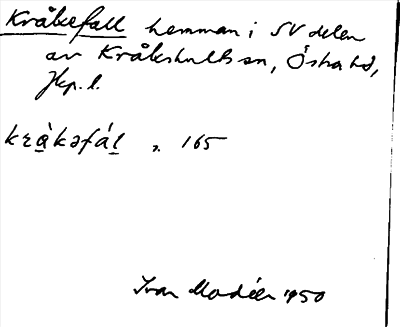 Kråkefall hemman i SV delen
av Kråkshults sn, Östra hd,
Jkp. l.
krà̱kəfá̱l̲ , 165
Ivar Modéer 1950